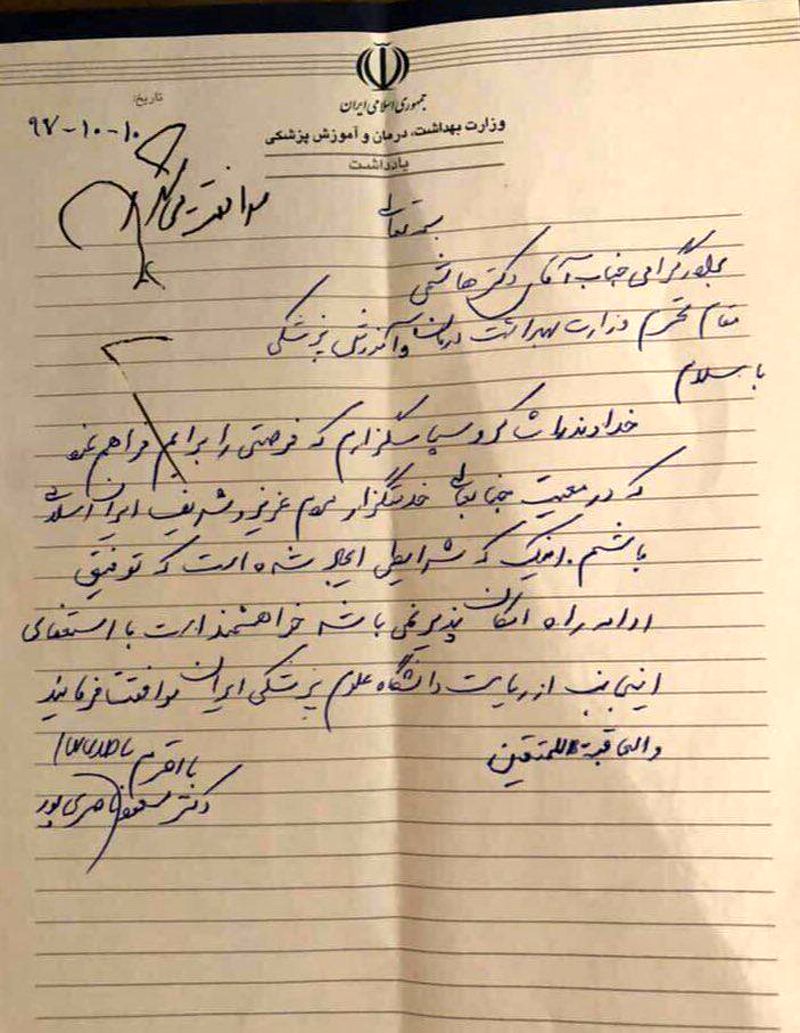 جمهوری اسلامی ایران
وزارت بهداشت، درمان و آموزش پزشکی
یادداشت
تاریخ:
۹۷-۱۰-۱۰
موافقت می‌شود
بسمه تعالی
برادر گرامی جناب آقای دکتر هاشمی
مقام محترم وزارت بهداشت درمان و آموزش پزشکی
با سلام
خداوند را شاکر و سپاسگزارم که فرصتی را برایم فراهم نمود
که در معیت جنابعالی خدمتگزار مردم عزیز و شریف ایران اسلامی
باشم. اینک که شرایطی ایجاد شده است که توفیق
ادامه راه امکان پذیر نمی باشد خواهشمند است با استعفای
اینجانب از ریاست دانشگاه علوم پزشکی ایران موافقت فرمایند
والعاقبة للمتقین
با احترام
دکتر مسعود ناصری پور